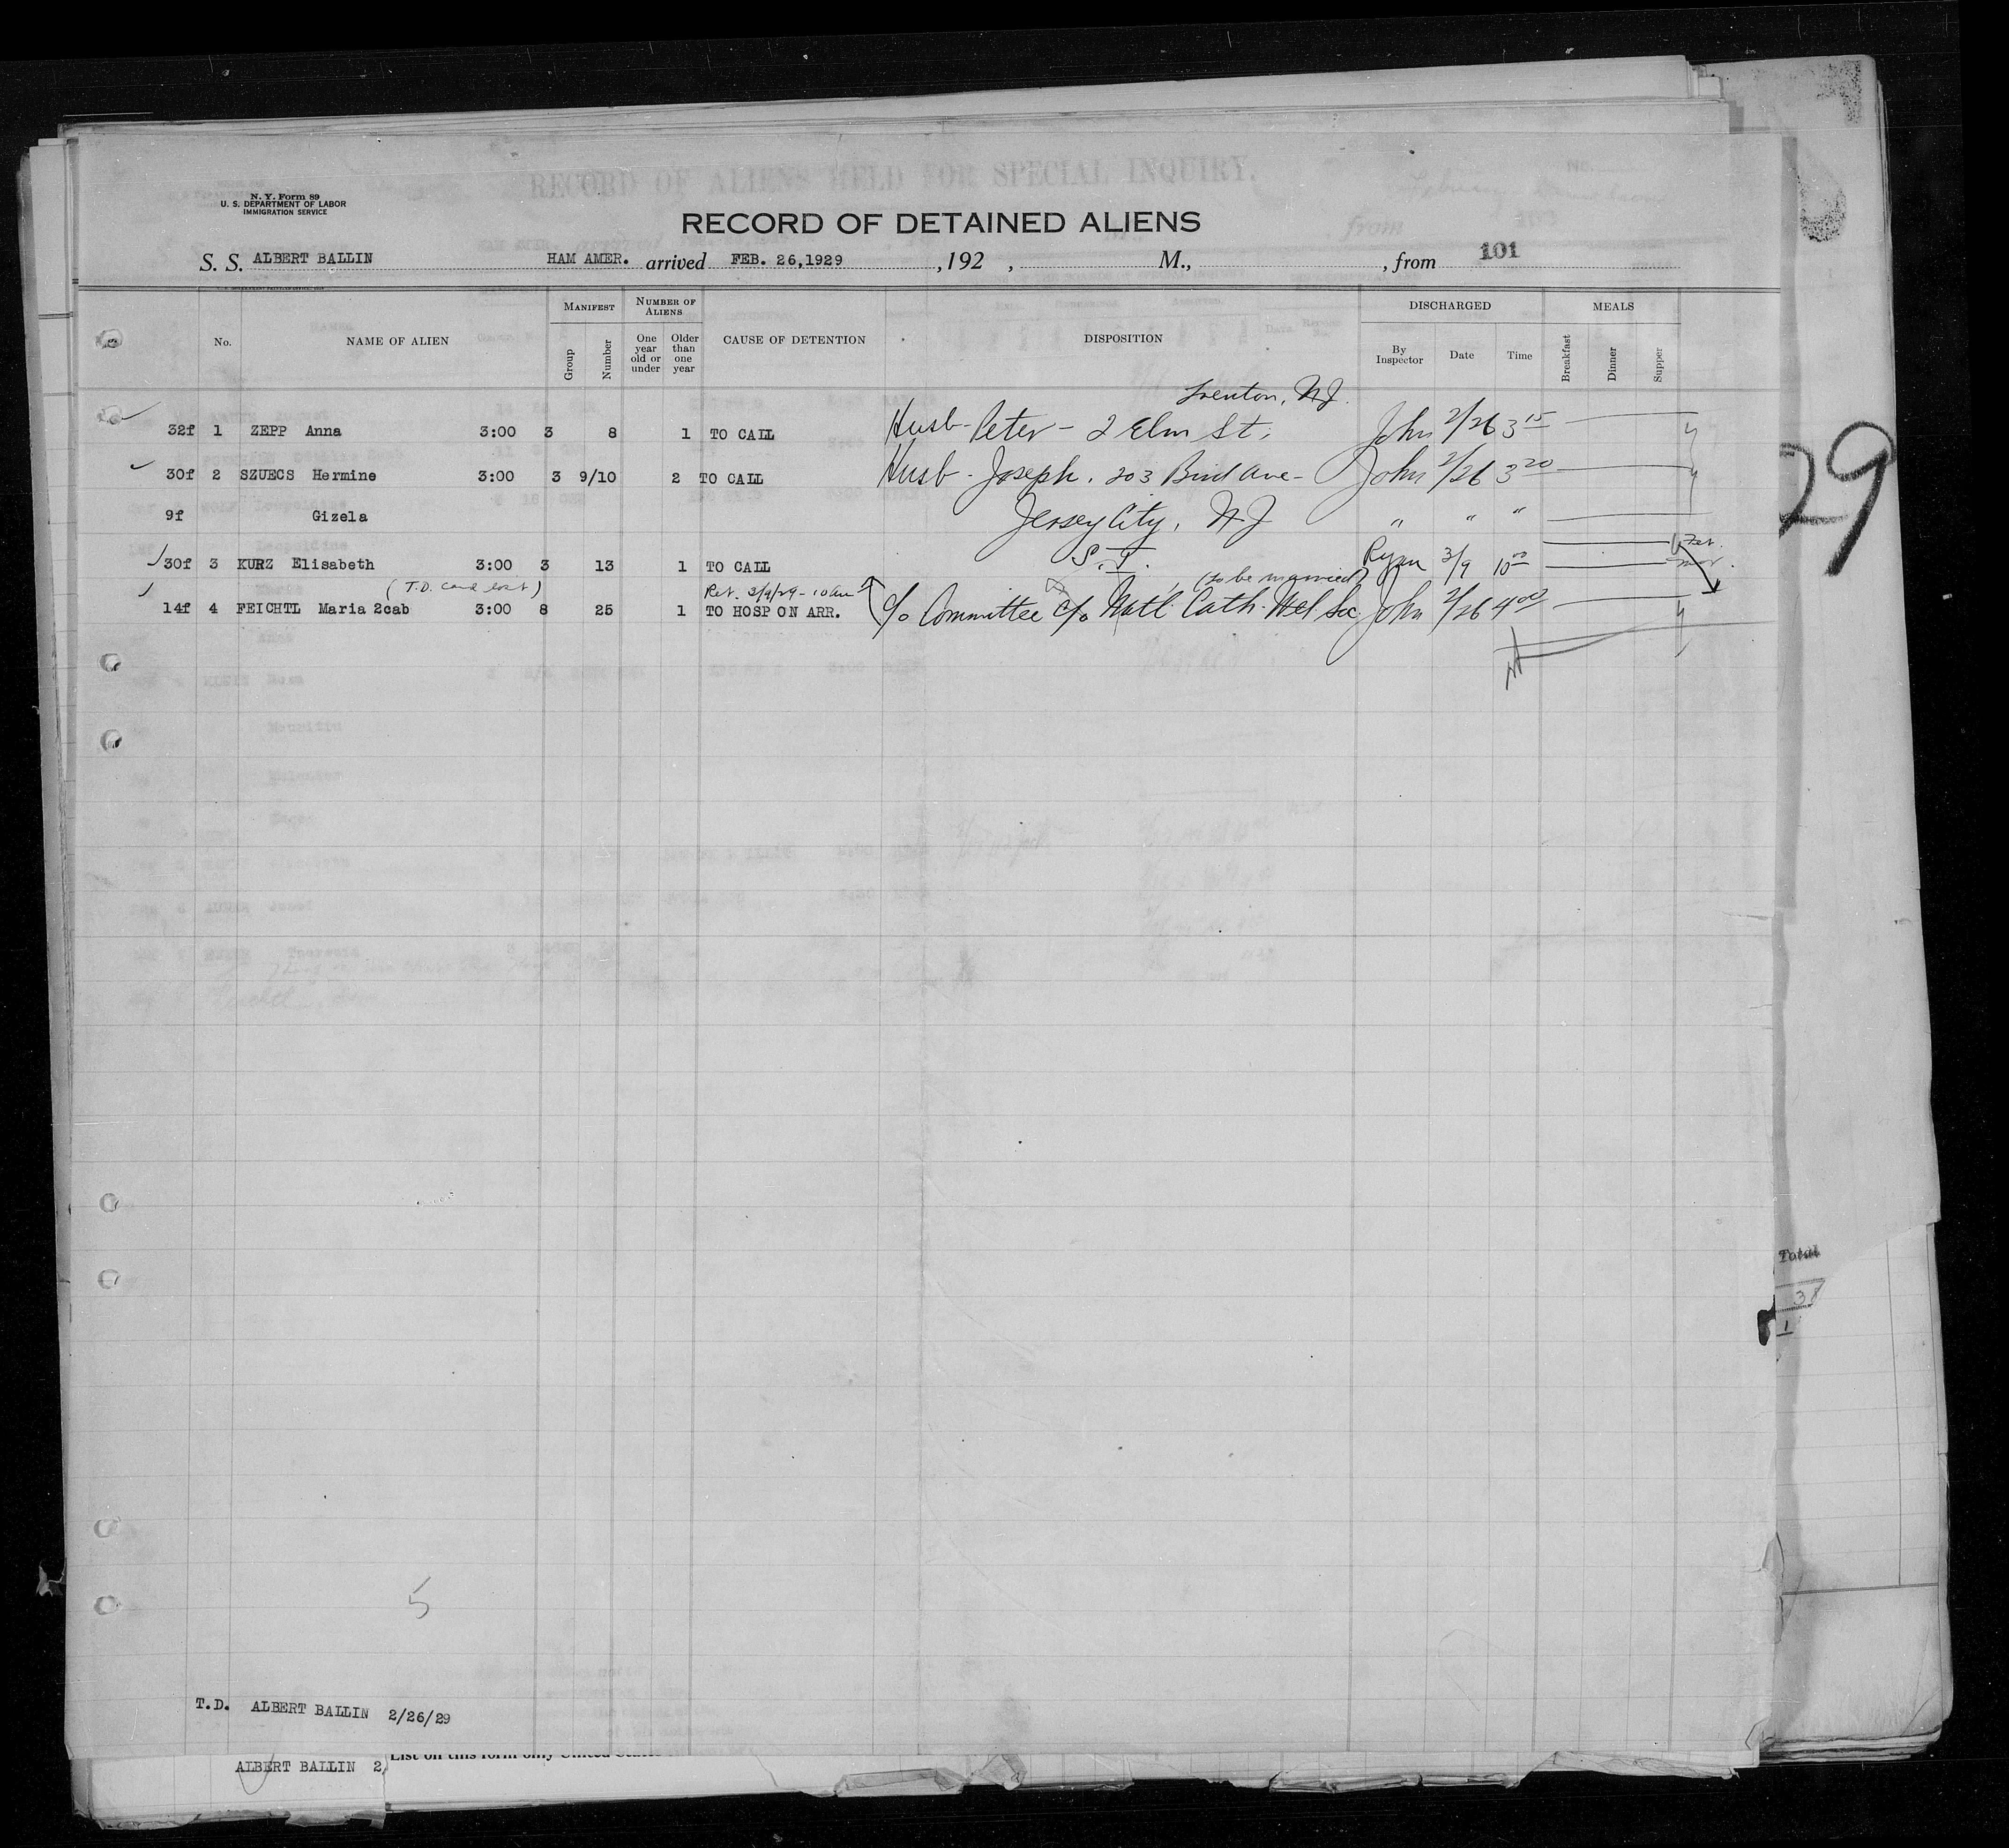 RECORD OF ALIENS HELD FOR SPECIAL INQUIRY.
N. Y. Form 89
U. S. DEPARTMENT OF LABOR
IMMIGRATION SERVICE
RECORD OF DETAINED ALIENS
S. S. ALBERT BALLIN HAM AMER. arrived FEB. 26,1929 , 192 , M., , from 101
No. NAME OF ALIEN MANIFEST Group Number NUMBER OF ALIENS One year old or under Older than one year CAUSE OF DETENTION DISPOSITION DISCHARGED By Inspector Date Time MEALS Breakfast Dinner Supper
Trenton, NJ.
32f 1 ZEPP Anna 3:00 3 8 1 TO CALL Husb- Peter - 2 Elm St, John 2/26 3 15
30f 2 SZUECS Hermine 3:00 3 9/10 2 TO CALL Husb - Joseph. 203 Bird Ave- John 2/26 3 20
9f Gizela Jersey City, N.J " " "
30f 3 KURZ Elisabeth 3:00 3 13 1 TO CALL S.I. Ryan 3/9 10 00
(T.D. card lost) Ret. 3/9/29 - 10 am (to be married)
14f 4 FEICHTL Maria 2cab 3:00 8 25 1 TO HOSP ON ARR. c/o Committee c/o Nat'l Cath. Wel Soc John 2/26 4 00
29
Total
38
1
5
T.D. ALBERT BALLIN 2/26/29
ALBERT BALLIN 2/
List on this form only United